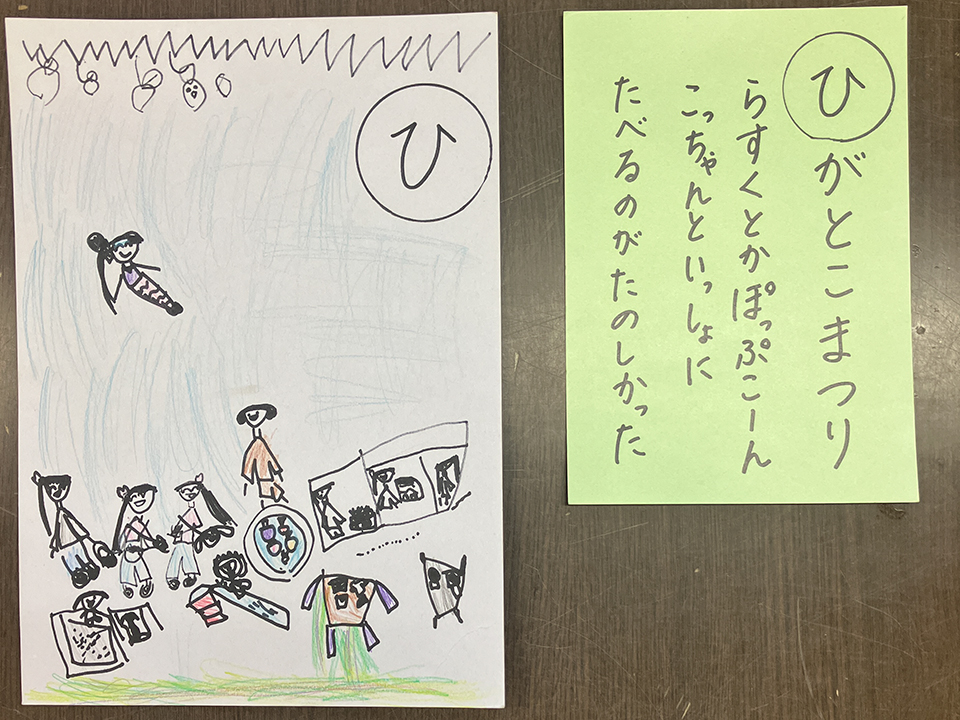 ひ
ひがとこまつり
らすくとかぽっぷこーん
こっちゃんといっしょに
たべるのがたのしかった